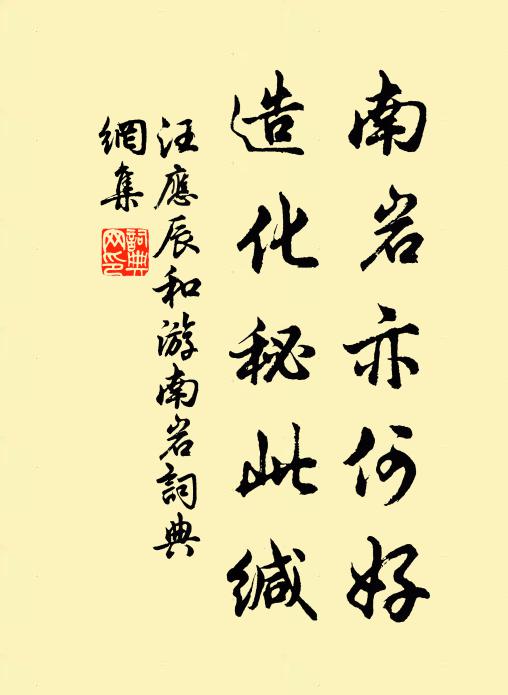 南岩亦何好
造化秘此缄
汪應辰和游南岩詞典
網集
詞典
网印